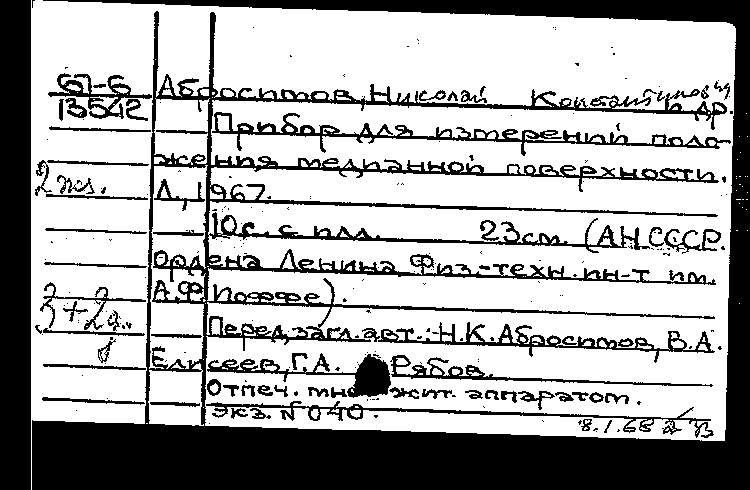 67-6
13542
Абросимов, Николай Константинович
и др.
Прибор для измерений поло-
жения медианной поверхности.
2 экз.
Л., 1967.
10с. с илл. 23см. (АН СССР.
Ордена Ленина Физ.-техн. ин-т им.
А.Ф. Иоффе).
3+2д.
Перед загл. авт.: Н.К. Абросимов, В.А.
Елисеев, Г.А. Рябов.
Отпеч. множит. аппаратом.
Экз. N 040.
8.1.68